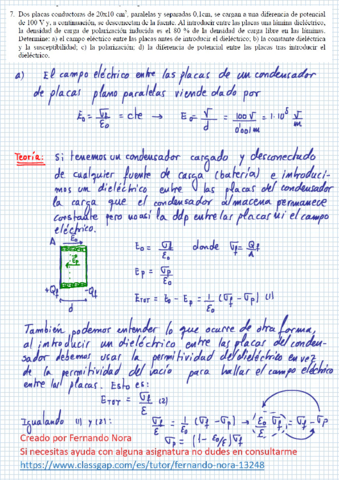 7. Dos placas conductoras de 20x10 cm², paralelas y separadas 0,1cm, se cargan a una diferencia de potencial
de 100 V y, a continuación, se desconectan de la fuente. Al introducir entre las placas una lámina dieléctrica,
la densidad de carga de polarización inducida es el 80 % de la densidad de carga libre en las láminas.
Determinar: a) el campo eléctrico entre las placas antes de introducir el dieléctrico; b) la constante dieléctrica
y la susceptibilidad; c) la polarización; d) la diferencia de potencial entre las placas tras introducir el
dieléctrico.
a) El campo eléctrico entre las placas de un condensador
de placas plano paralelas viende dado por
E₀ = σf/ε₀ = cte → E₀ = V/d = 100V/0'001m = 1·10⁵ V/m
Teoría: Si tenemos un condensador cargado y desconectado
de cualquier fuente de carga (batería) e introduci-
mos un dieléctrico entre las placas del condensador
la carga que el condensador almacena permanece
constante pero no así la ddp entre las placas ni el campo
eléctrico.
A E₀
Ep
+Qf -Qf
d
E₀ = σf/ε₀ donde σf = Qf/A
Ep = σp/ε₀
ETOT = E₀ - Ep = 1/ε₀ (σf - σp) (1)
También podemos entender lo que ocurre de otra forma,
al introducir un dieléctrico entre las placas del conden-
sador debemos usar la permitividad del dieléctrico en vez
de la permitividad del vacío para hallar el campo eléctrico
entre las placas. Esto es:
ETOT = σf/ε (2)
Igualando (1) y (2): σf/ε = 1/ε₀ (σf - σp) → ε₀/ε σf = σf - σp
σp = (1 - ε₀/ε) σf
Creado por Fernando Nora
Si necesitas ayuda con alguna asignatura no dudes en consultarme
https://www.classgap.com/es/tutor/fernando-nora-13248